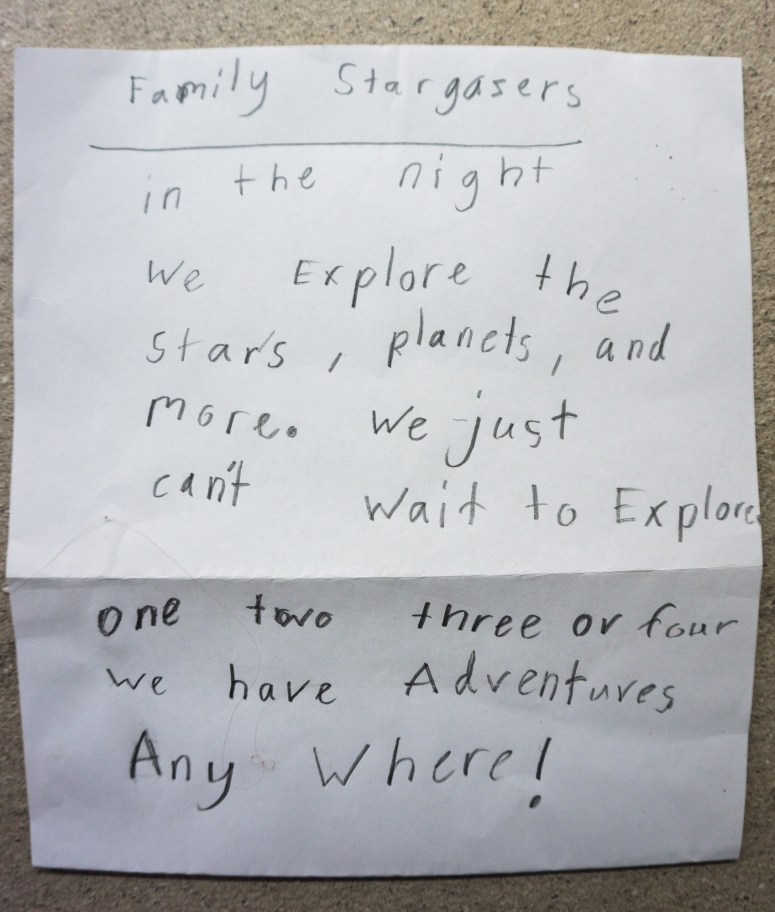 Family Stargasers
in the night
We Explore the
stars, planets, and
more. We just
can't Wait to Explore
one two three or four
We have Adventures
Any Where!